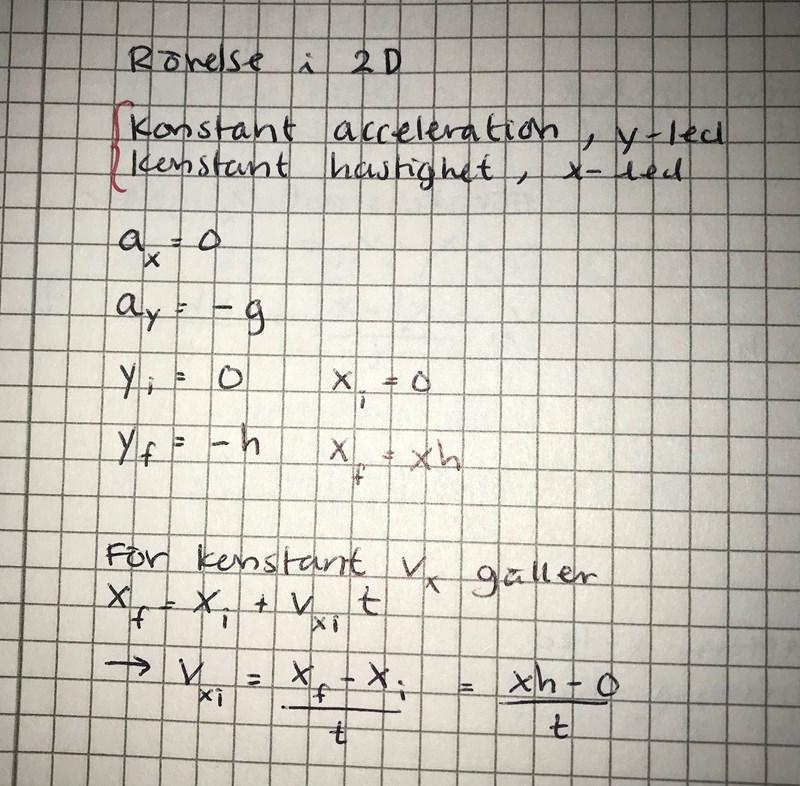 Rörelse i 2D
Konstant acceleration, y-led
Konstant hastighet, x-led
a_x = 0
a_y = -g
y_i = 0 x_i = 0
y_f = -h x_f = xh
För konstant v_x gäller
x_f = x_i + v_xi t
→ v_xi = (x_f - x_i)/t = (xh - 0)/t